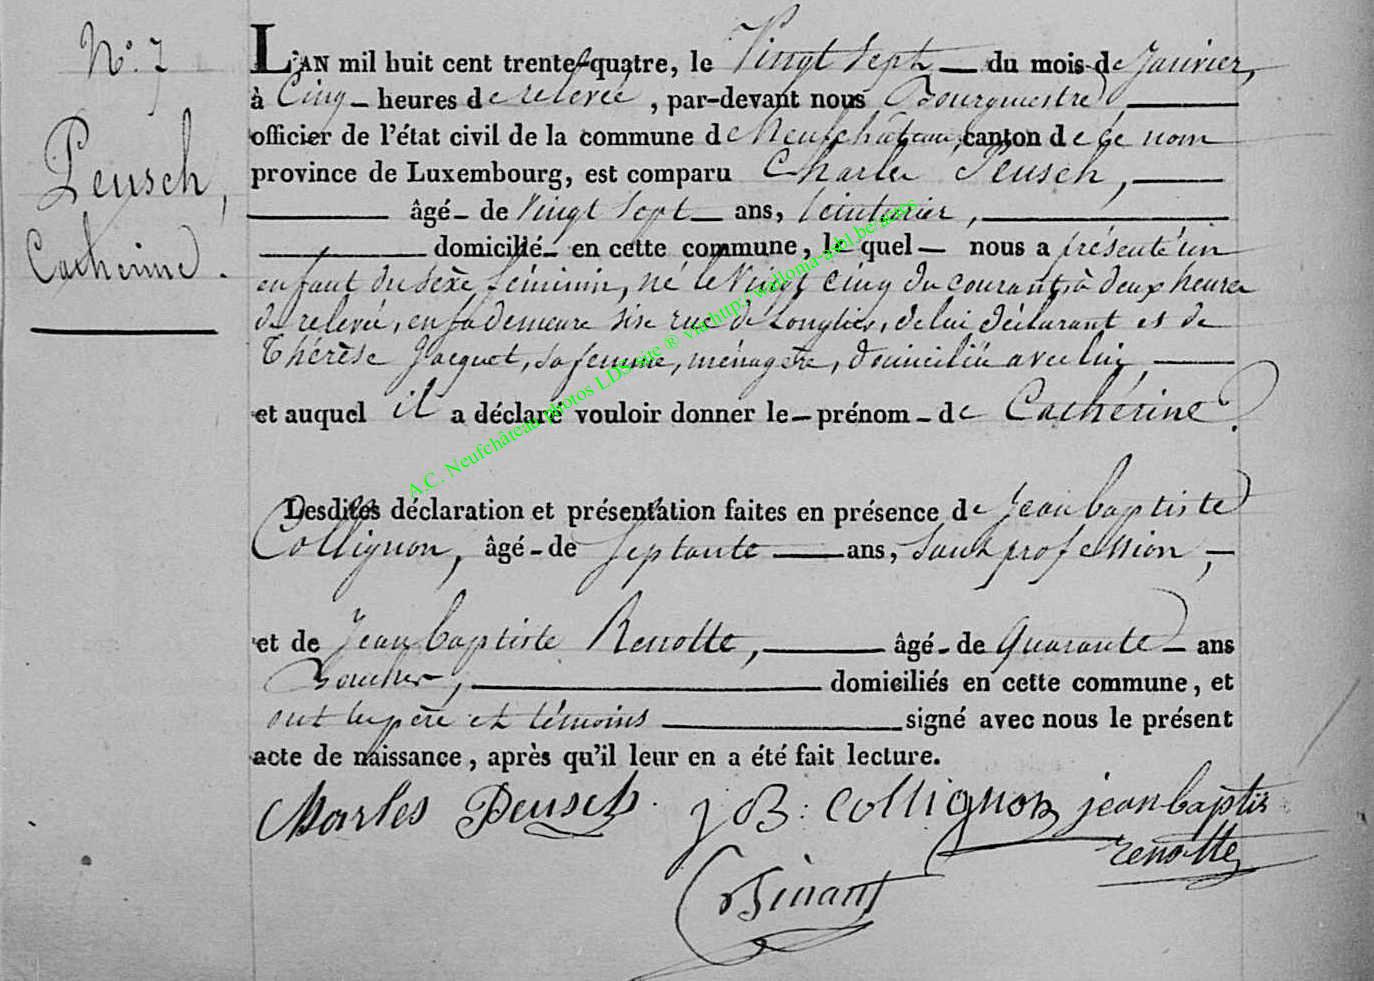 N° 7
Peusch,
Catherine.
L'AN mil huit cent trente-quatre, le Vingt Sept du mois de Janvier,
à Cinq heures de relevée, par-devant nous Bourgmestre
officier de l'état civil de la commune de Neufchâteau, canton de ce nom
province de Luxembourg, est comparu Charles Peusch,
âgé de Vingt Sept ans, teinturier,
domicilié en cette commune, lequel nous a présenté un
enfant du sexe féminin, né le Vingt cinq du courant, à deux heures
de relevée, en sa demeure sise rue de Longlier, de lui déclarant et de
Thérèse Jacquet, sa femme, ménagère, domiciliée avec lui,
et auquel il a déclaré vouloir donner le prénom de Cathérine.
Lesdites déclaration et présentation faites en présence de Jean baptiste
Collignon, âgé de Septante ans, Sans profession,
et de Jean baptiste Renotte, âgé de Quarante ans
Boucher, domiciliés en cette commune, et
ont les père et témoins signé avec nous le présent
acte de naissance, après qu'il leur en a été fait lecture.
Charles Peusch. J B: Collignon jean baptis
renotte
Dinant
A.C. Neufchâteau photos LDS site ® via http://wallonia-asbl.be/